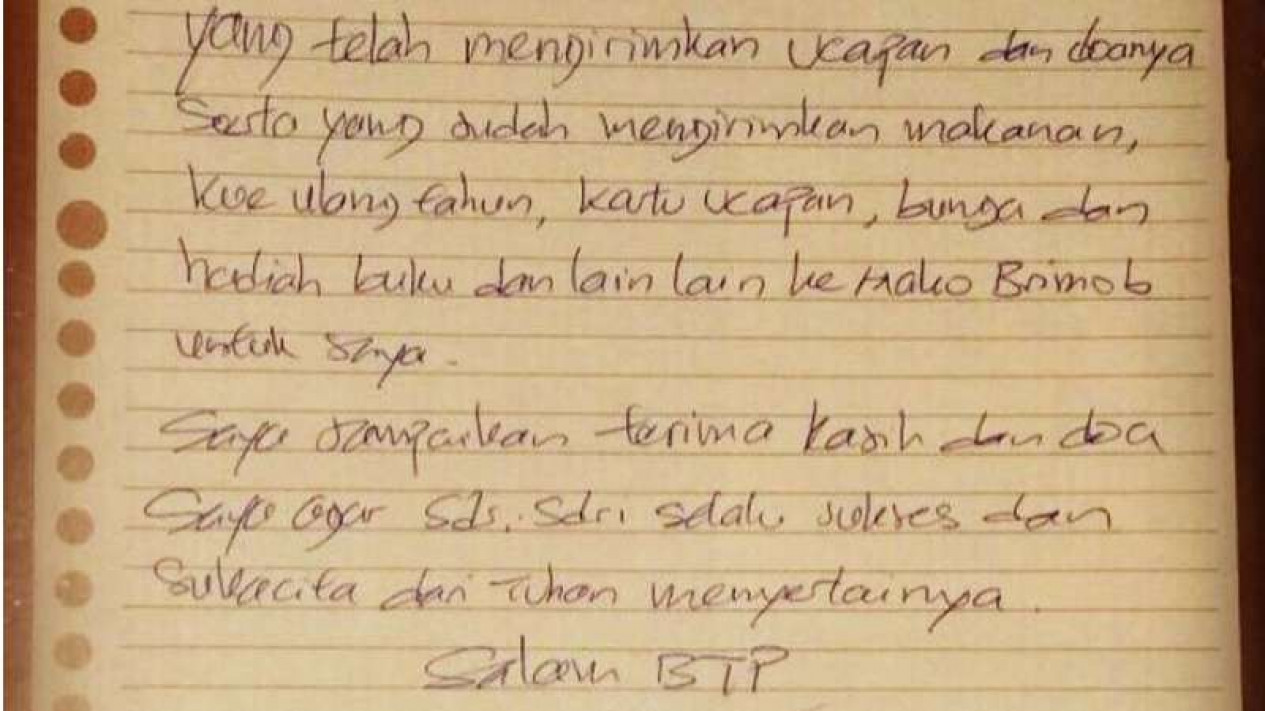 yang telah mengirimkan ucapan dan doanya
Serta yang sudah mengirimkan makanan,
kue ulang tahun, kartu ucapan, bunga dan
hadiah buku dan lain lain ke Mako Brimob
untuk saya.
Saya sampaikan terima kasih dan doa
Saya agar Sds. Sdri selalu sukses dan
Sukacita dari Tuhan menyertainya.
Salam BTP